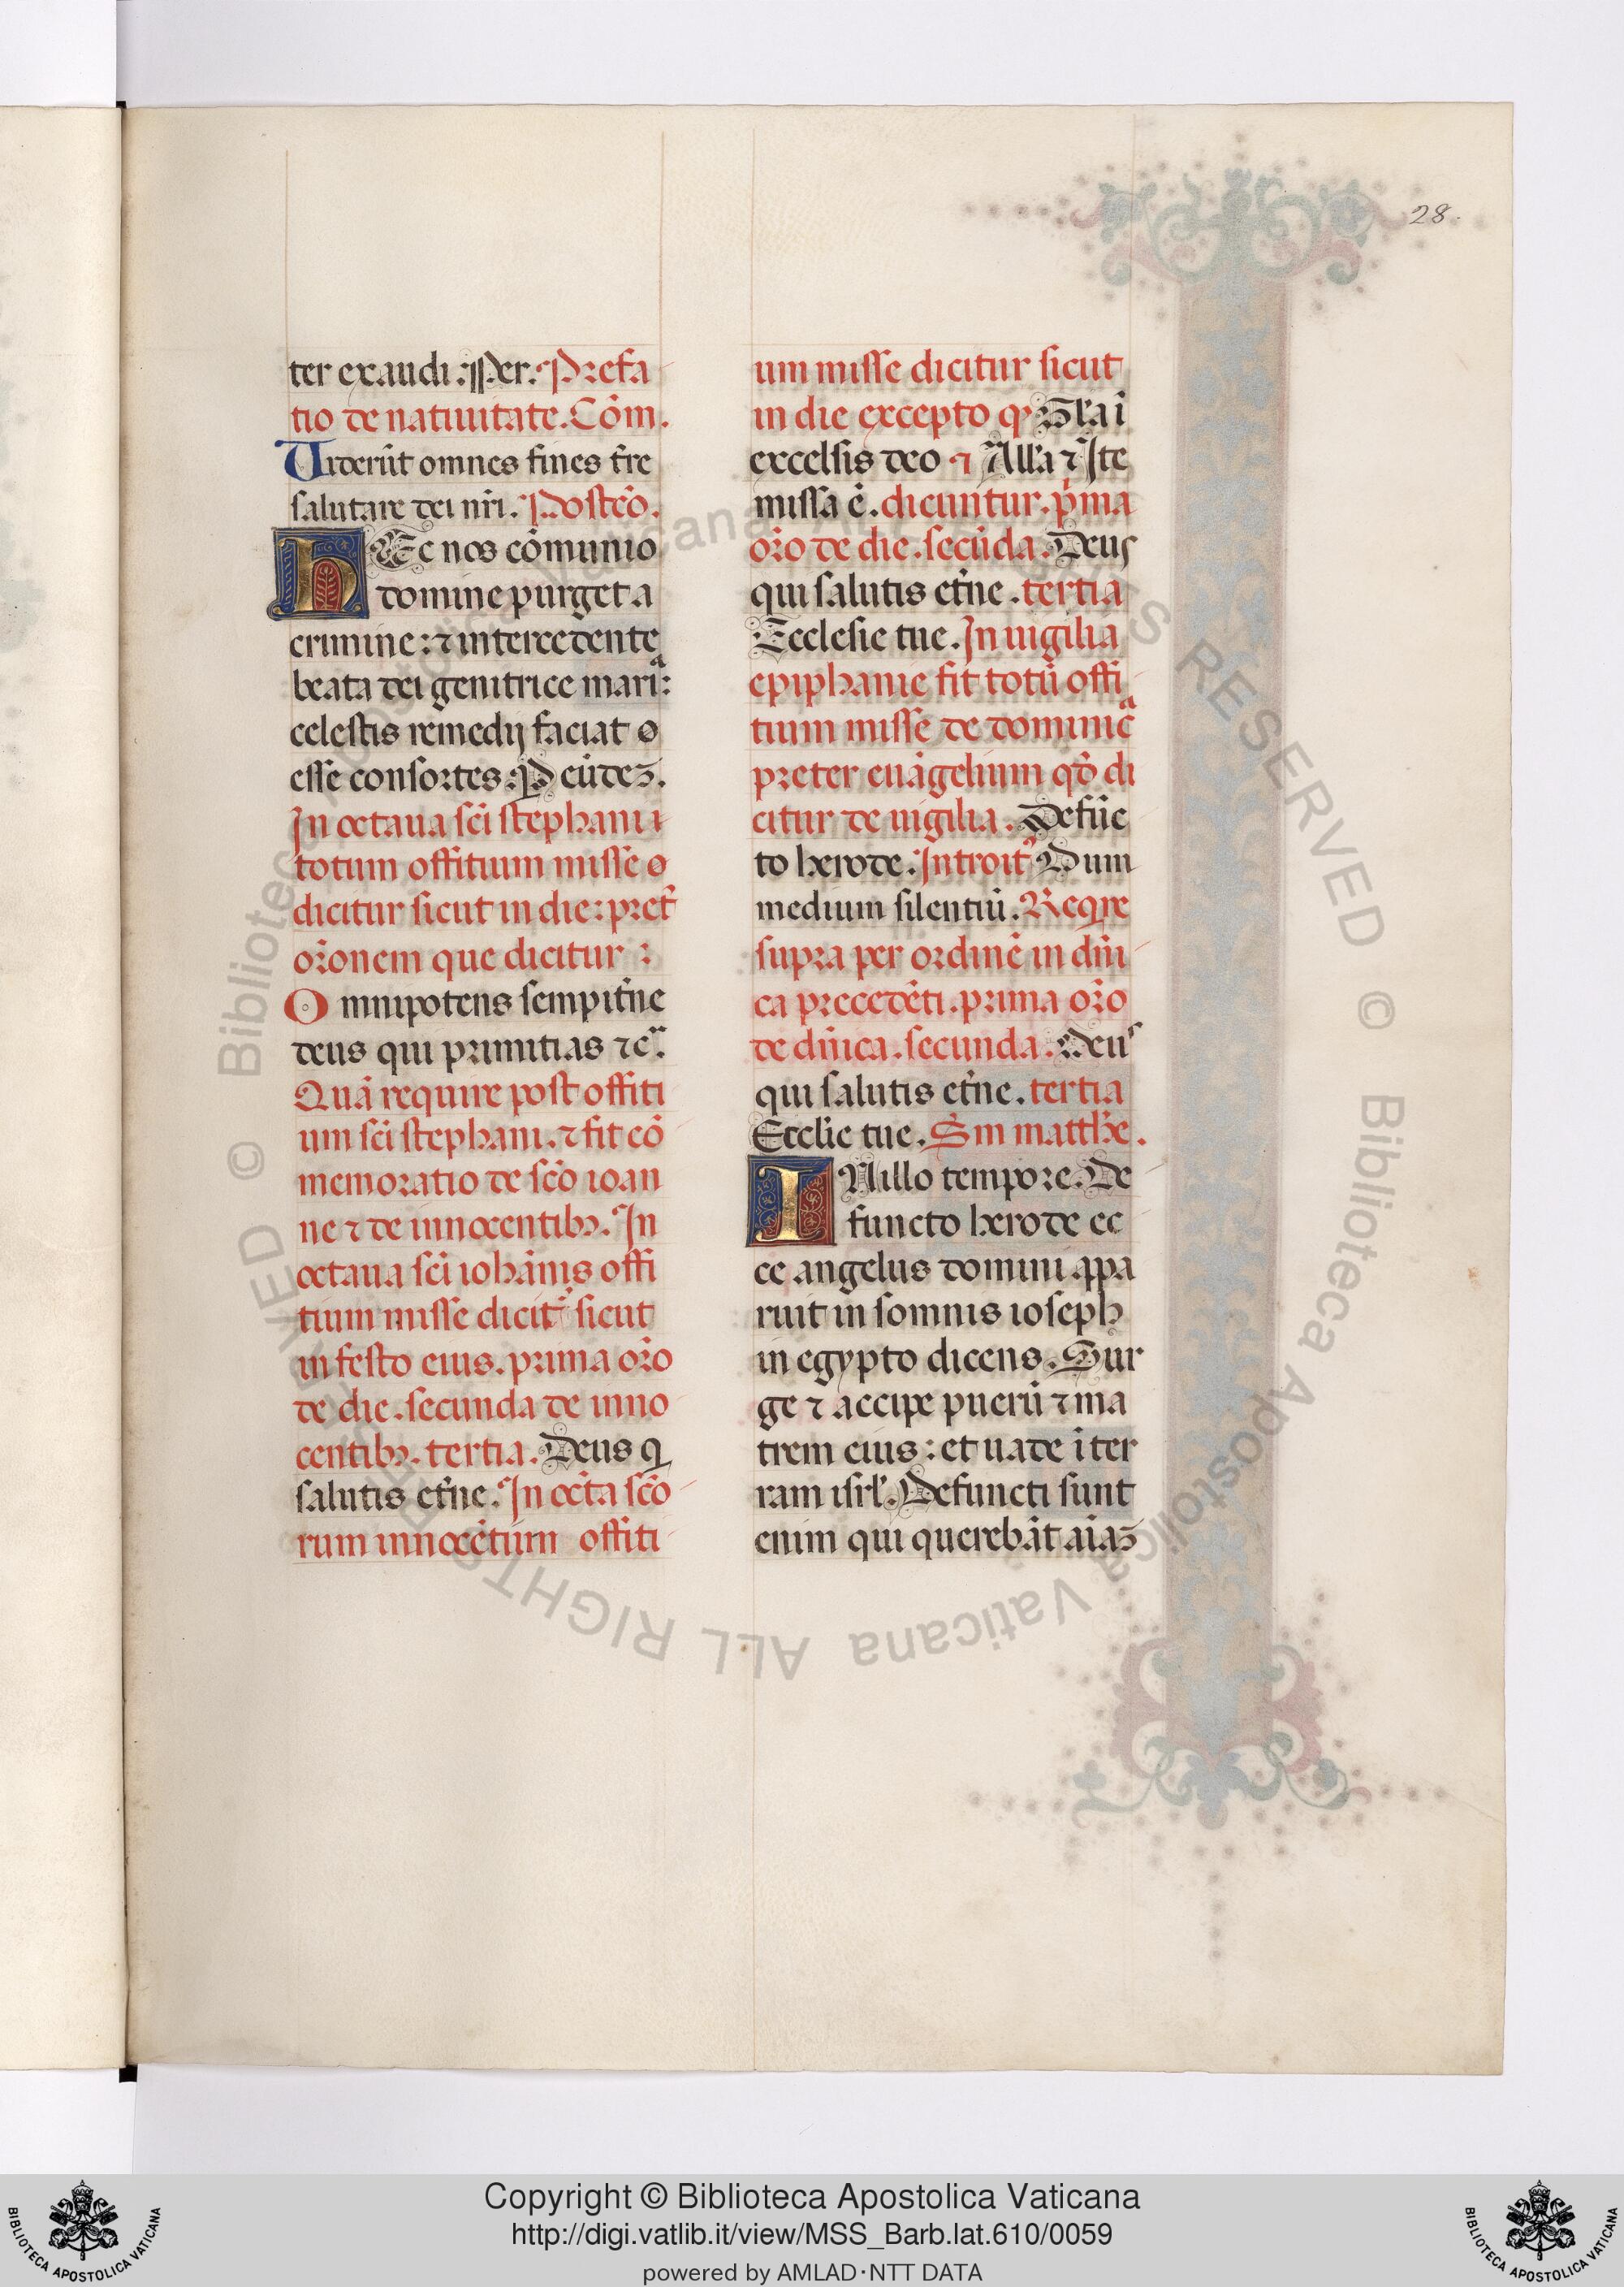 28.
ter exaudi. Per. Prefa
tio de natiuitate. Cōm.
Uiderūt omnes fines t̄re
salutare dei nr̄i. Postcō.
HEc nos cōmunio
domine purget a
crimine: ⁊ intercedente
beata dei genitrice mariᵃ:
celestis remedij faciat
esse consortes. Qͥ
In octaua sc̄i stephani
totum offitium misse
dicitur sicut in die: pret̄
or̄onem que dicitur :
Omnipotens sempit̄ne
deus qui primitias ⁊cᵃ.
Quā require post offiti
um sc̄i stephani. ⁊ fit cō
memoratio de sc̄o ioan
ne ⁊ de innocentibꝫ. In
octaua sc̄i iohānis offi
tium misse dicit᷑ sicut
in festo eius. prima or̄o
de die. secunda de inno
centibꝫ. tertia. Deus q
salutis et̄ne. In oct̄a sc̄o
rum innocētum offiti
um misse dicitur sicut
in die excepto q Gl̄a ī
excelsis deo ⁊ All̄a ⁊ Ite
missa ē. dicuntur. pͥma
or̄o de die. secūda. Deus
qui salutis et̄ne. tertia
Ecclesie tue. In uigilia
epiphanie fit totū offi
tium misse de dominicᵃ
preter euāgelium qd̄ di
citur de uigilia. Defūc
to herode. Introit᷑ Dum
medium silentiū. Reqͥre
supra per ordinē in dn̄i
ca precedēti. prima or̄o
de dn̄ica. secunda. Deus
qui salutis et̄ne. tertia
Eccl̄ie tue. Sm matthe.
IN illo tempore. De
functo herode ec
ce angelus domini appa
ruit in somnis ioseph
in egypto dicens. Sur
ge ⁊ accipe puerū ⁊ ma
trem eius: et uade ī ter
ram isrl̄. Defuncti sunt
enim qui querebāt aīaꝫ
© Biblioteca Apostolica Vaticana ALL RIGHTS RESERVED © Biblioteca Apostolica Vaticana ALL RIGHTS RESERVED
BIBLIOTECA APOSTOLICA VATICANA
Copyright © Biblioteca Apostolica Vaticana
http://digi.vatlib.it/view/MSS_Barb.lat.610/0059
powered by AMLAD·NTT DATA
BIBLIOTECA APOSTOLICA VATICANA